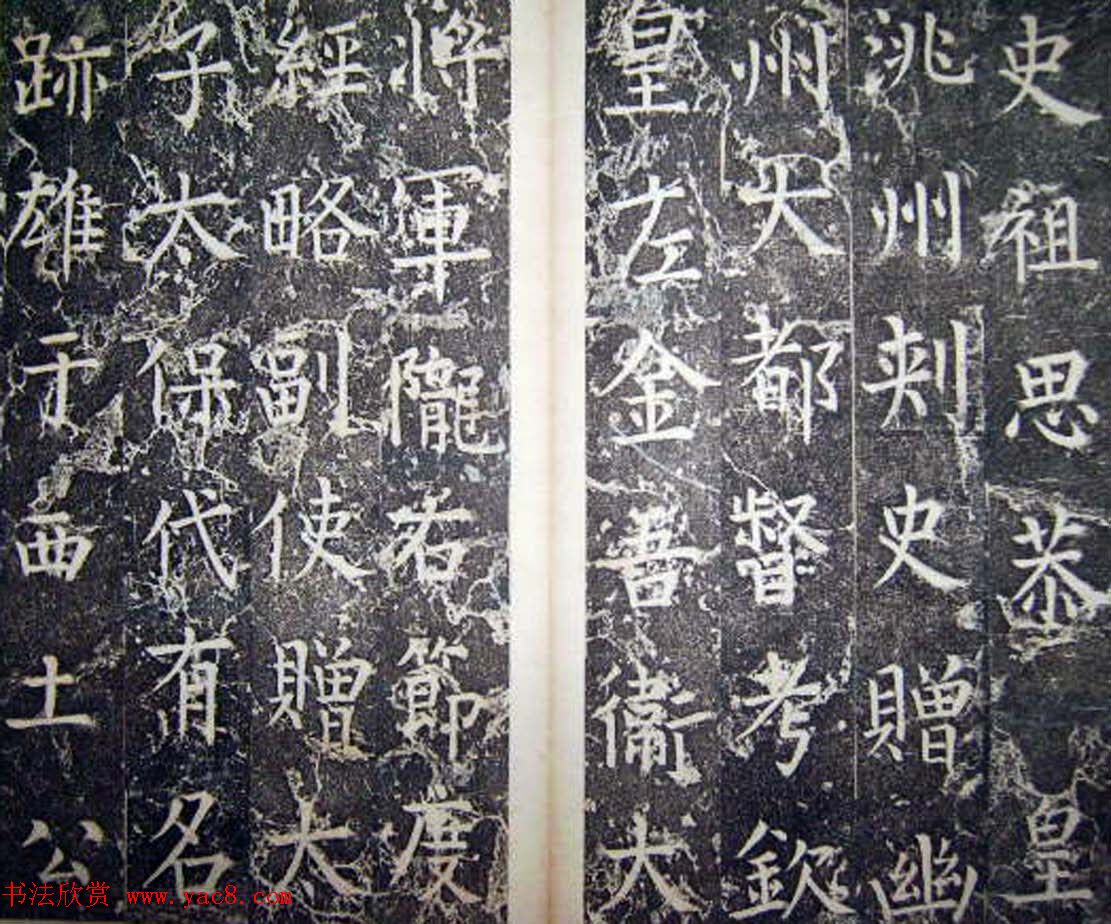 史祖思恭皇
洮州刺史贈幽
州大都督考欽
皇左金善衛大
將軍隴右節度
經略副使贈太
子太保代有名
跡雄于西土公
书法欣赏 www.yac8.com